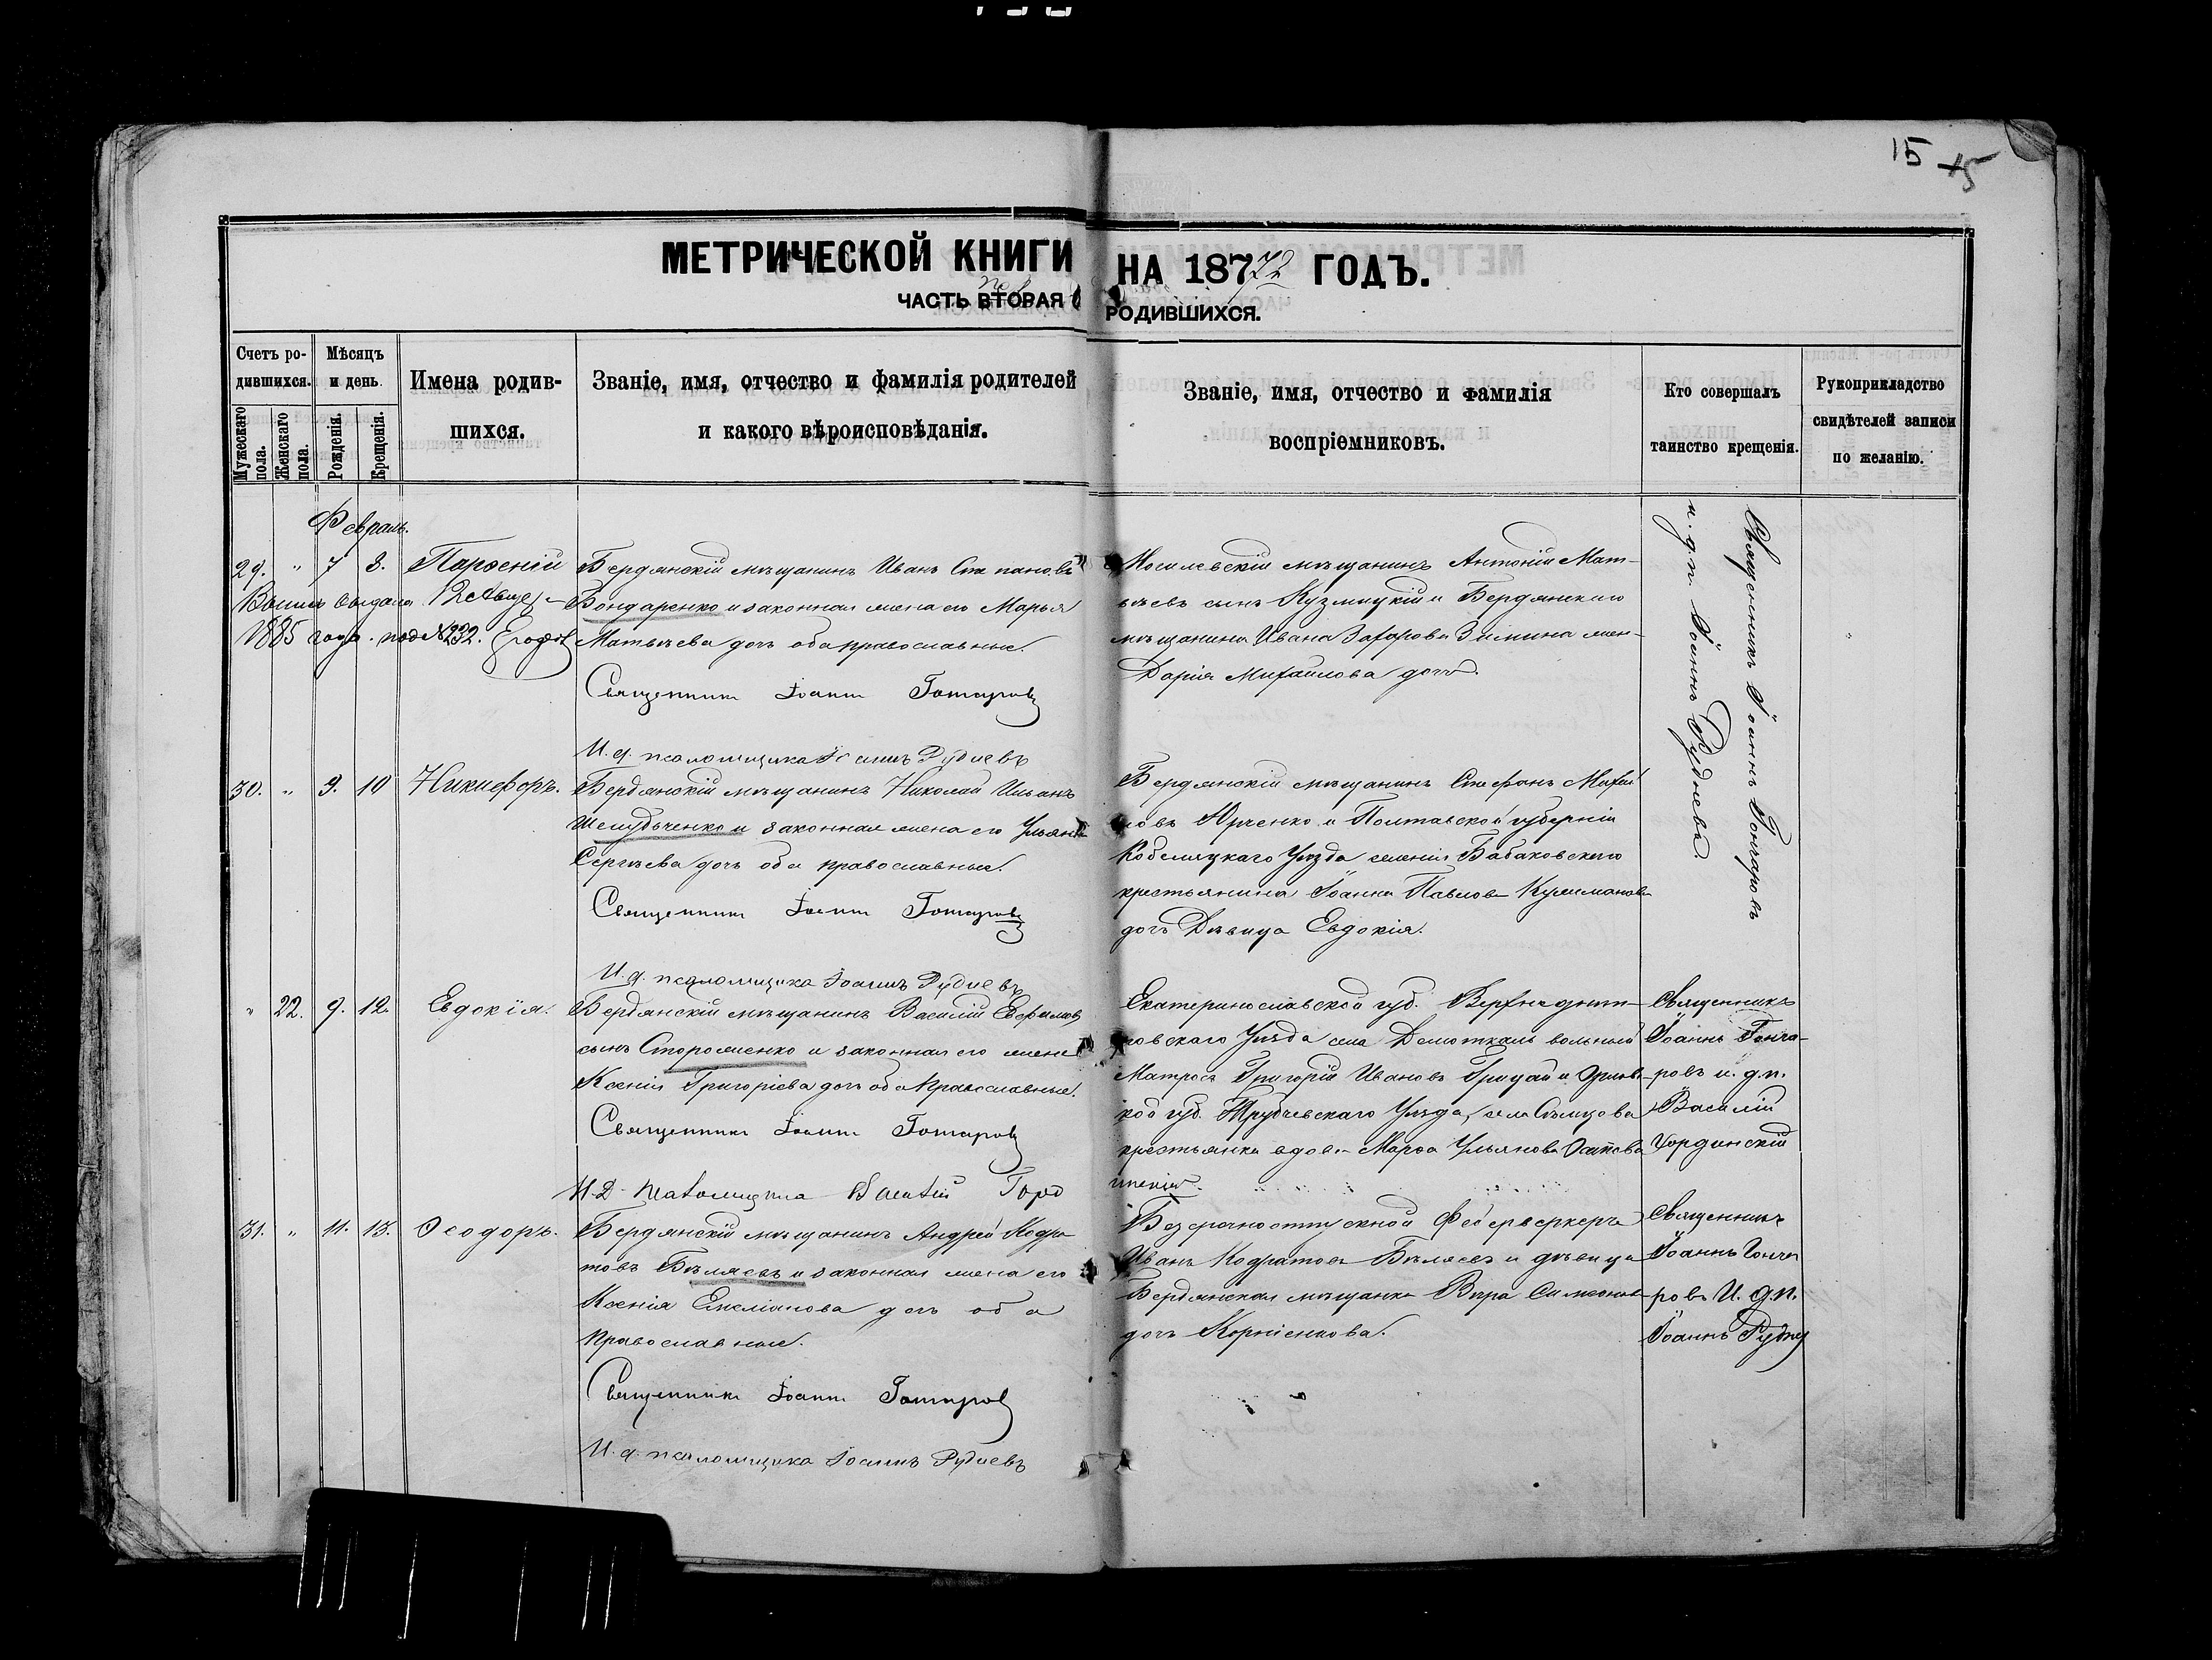 15 15
МЕТРИЧЕСКОЙ КНИГИ НА 1872 ГОДЪ.
ЧАСТЬ ВТОРАЯ О РОДИВШИХСЯ.
Счетъ родившихся.
Мужескаго пола.
Женскаго пола.
Мѣсяцъ и день.
Рожденія.
Крещенія.
Имена родившихся.
Званіе, имя, отчество и фамилія родителей
и какого вѣроисповѣданія.
Званіе, имя, отчество и фамилія
воспріемниковъ.
Кто совершалъ
таинство крещенія.
Рукоприкладство
свидѣтелей записи
по желанію.
Февраль.
29. " 7 8. Парѳеній
1885 года. подъ № 232.
Бердянскій мѣщанинъ Иванъ Степановъ
Бондаренко и законная жена его Марья
Матвѣева дочь оба православные.
Священникъ Іоаннъ Гончаровъ
И. д. псаломщика Іоаннъ Рудневъ
Антоній Мат-
вѣевъ сынъ Кузмицкій и Бердянскаго
мѣщанина Ивана Захарова Зимина жен-
Дарія Михайлова дочь.
Священникъ Іоаннъ Гончаровъ
и. д. п. Іоаннъ Рудневъ.
30. " 9. 10 Никифоръ.
Бердянскій мѣщанинъ Николай
и законная жена его Ульяна
Сергѣева дочь оба православные.
Священникъ Іоаннъ Гончаровъ
И. д. псаломщика Іоаннъ Рудневъ
Бердянскій мѣщанинъ Стефанъ Михай
ловъ Юрченко и Полтавской губерніи
Кобеляцкаго Уѣзда селенія Бабаковскаго
крестьянина Іоанна Павлова
дочь Дѣвица Евдокія.
" 22. 9. 12. Евдокія.
Бердянскій мѣщанинъ Василій Ефимовъ
сынъ Стороженко и законная его жена
Ксенія Григоріева дочь оба Православные.
Священникъ Іоаннъ Гончаровъ
И. Д. Псаломщика Василій Горд
Екатеринославской губ. Верхнеднѣп-
ровскаго Уѣзда села Домоткань вольный
Матросъ Григорій Ивановъ Грицай и Орловс-
кой губ. Трубчевскаго Уѣзда, села
крестьянка вдова Марѳа Ульянова
Священникъ
Іоаннъ Гонча-
ровъ и. д. п.
Василій
Гординскій
31. " 11. 13. Ѳеодоръ.
Бердянскій мѣщанинъ Андрей Кодра
товъ Бѣляевъ и законная жена его
Ксенія Емеліанова дочь оба
православные.
Священникъ Іоаннъ Гончаровъ
И. д. псаломщика Іоаннъ Рудневъ
Безсрочноотпускной Фейерверкеръ
Иванъ Кодратовъ Бѣляевъ и дѣвица
Бердянская мѣщанка Вѣра Симеонов
дочь Корніенкова.
Священникъ
Іоаннъ Гонча
ровъ И. д. п.
Іоаннъ Рудне